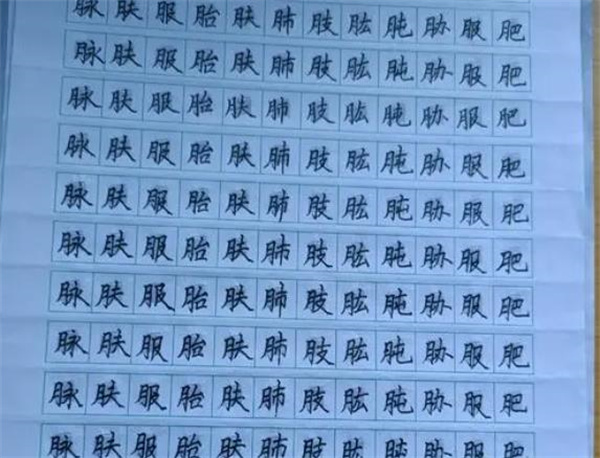 脉肤服胎肤肺肢肱肫胁服肥
脉肤服胎肤肺肢肱肫胁服肥
脉肤服胎肤肺肢肱肫胁服肥
脉肤服胎肤肺肢肱肫胁服肥
脉肤服胎肤肺肢肱肫胁服肥
脉肤服胎肤肺肢肱肫胁服肥
脉肤服胎肤肺肢肱肫胁服肥
脉肤服胎肤肺肢肱肫胁服肥
脉肤服胎肤肺肢肱肫胁服肥
脉肤服胎肤肺肢肱肫胁服肥